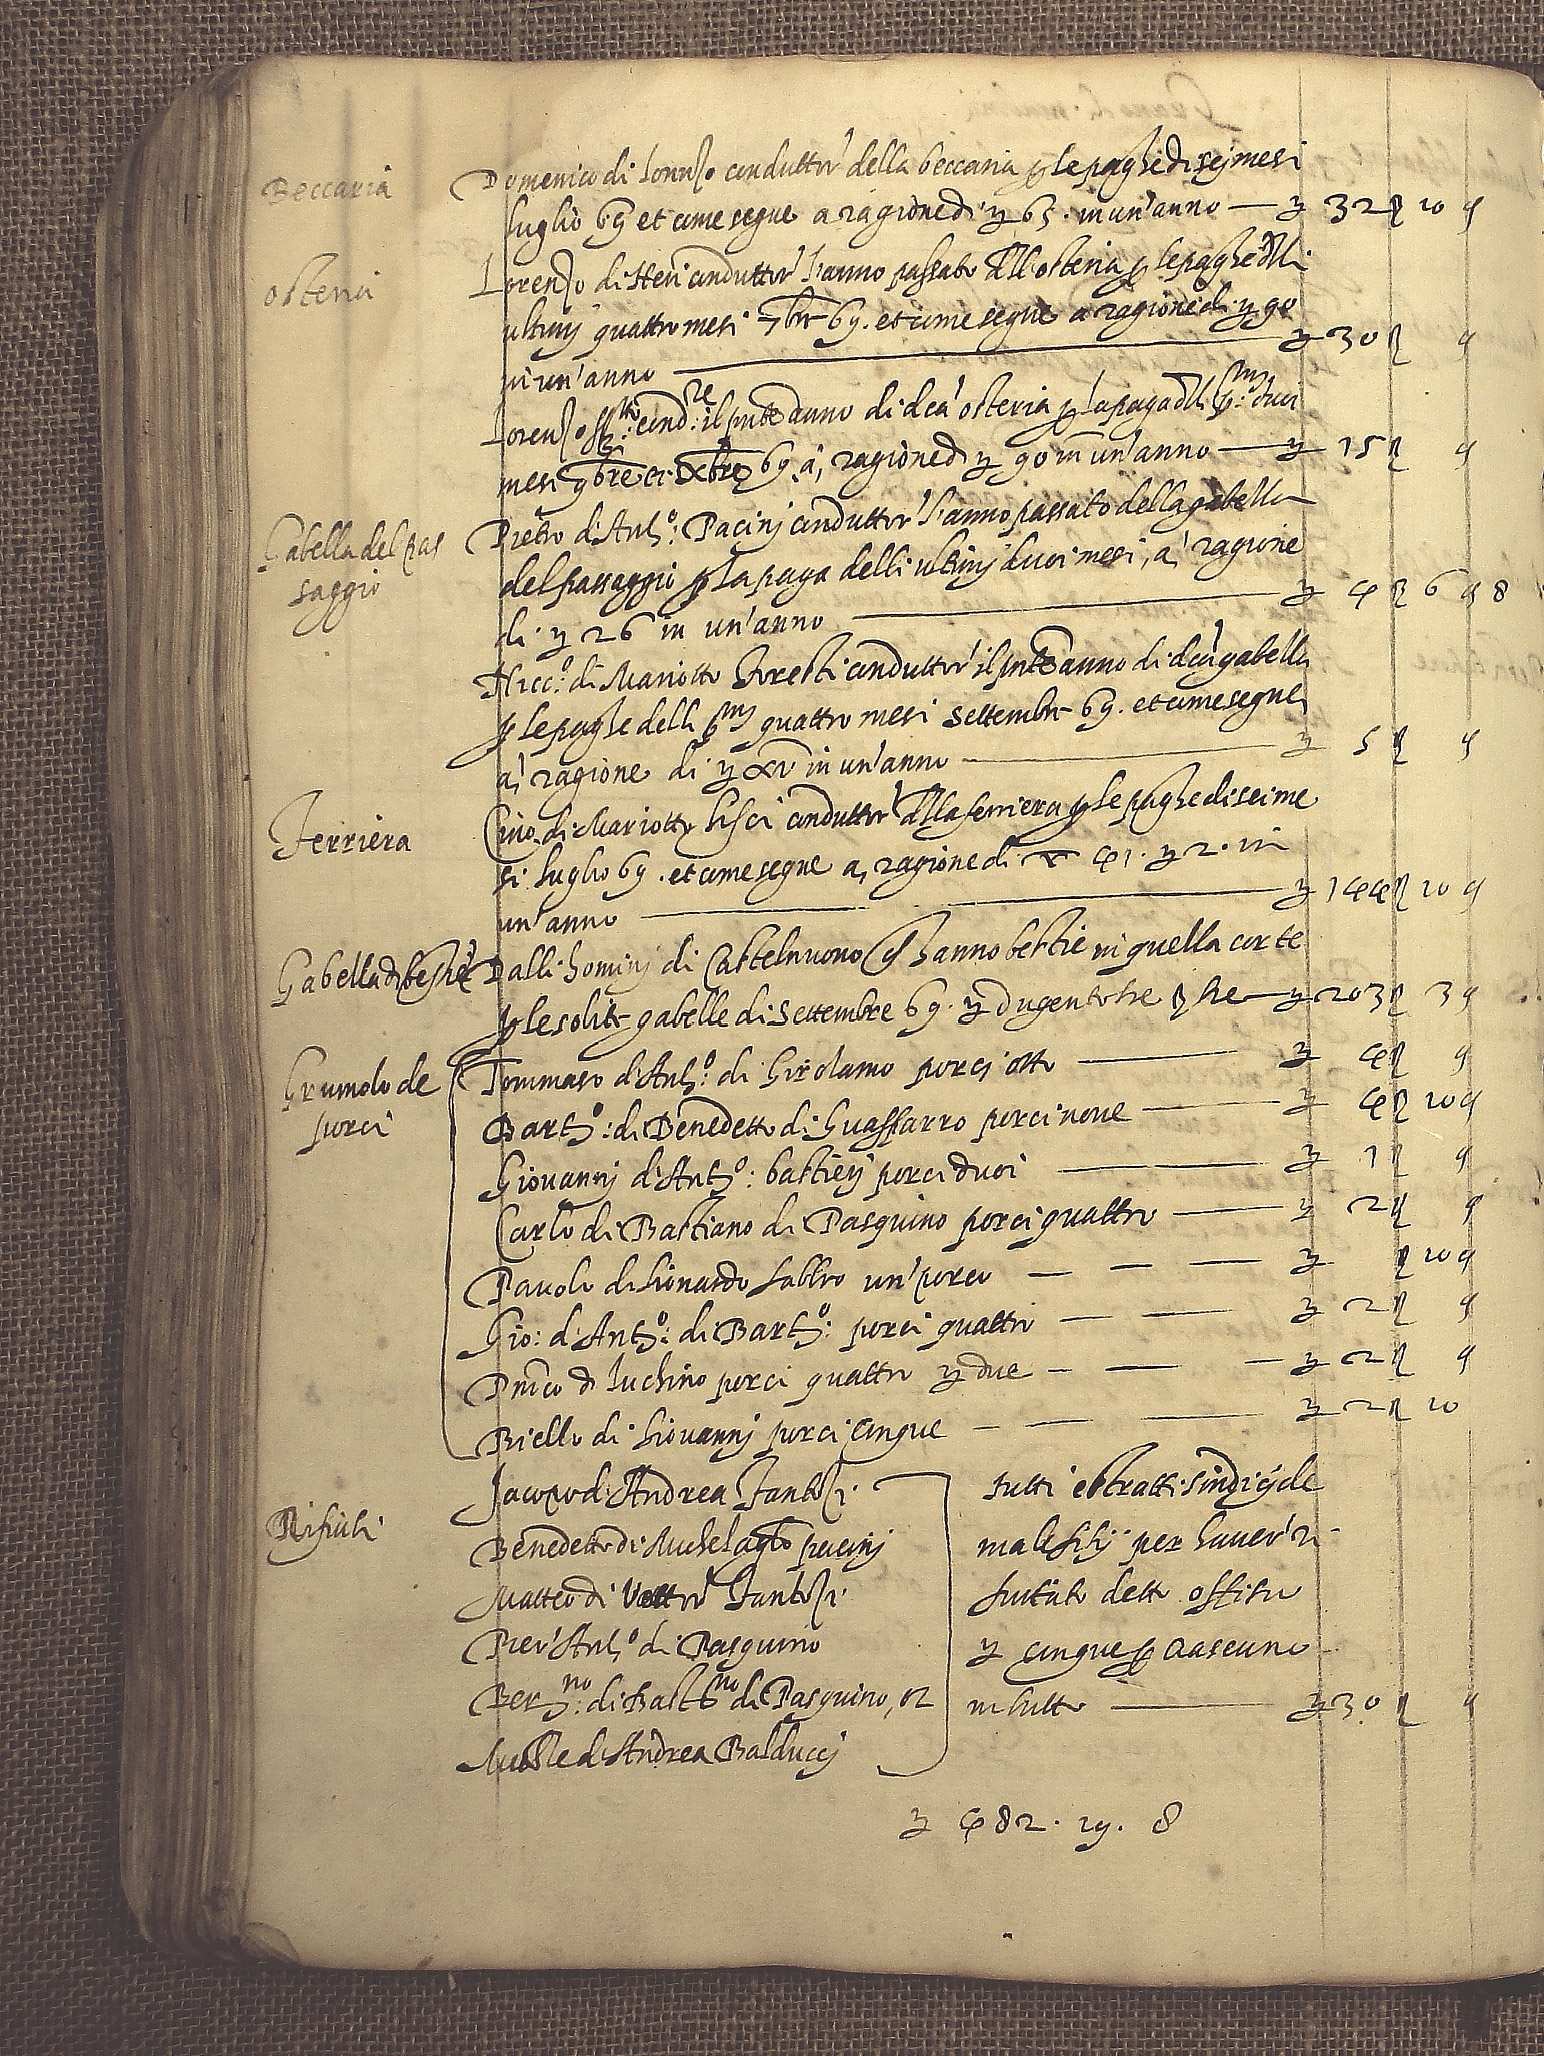 Beccaria
Domenico di Lorenzo conduttor' della beccaria p le paghe di sej mesi
luglio 69 et come segue a ragione di ƺ 65 · in un'anno — ƺ 32 ꝭ 10 ꝗ
osteria
Lorenzo di conduttor' l'anno passato dll'osteria p le paghe dlli
ultimj quattro mesi 7bre 69. et come segue a ragione di ƺ 90
in un'anno — ƺ 30 ꝭ ꝗ
Lorenzo cond:re il pnte anno di dca' osteria p la paga dlli p:mj duoi
mesi 9bre et Xbre 69 a' ragione di ƺ 90 in un'anno — ƺ 15 ꝭ ꝗ
Gabella del pas
saggio
Pietro d'Ant:o Pacinj conduttor' l'anno passato della gabella
del passaggio p la paga delli ultimj duoi mesi, a' ragione
di · ƺ 26 in un'anno — ƺ 4 ꝭ 6 ꝗ 8
Nicc:o di Mariotto Foresti conduttor' il pnte anno di dca' gabella
p le paghe delli p:mj quattro mesi settembre 69. et come segue
a' ragione di ƺ xv in un'anno — ƺ 5 ꝭ ꝗ
Ferriera
Cino di Mariotto conduttor' dlla ferriera p le paghe di sei me
si luglio 69. et come segue a, ragione di 41. ƺ 2. in
un'anno — ƺ 144 ꝭ 10 ꝗ
Gabella di bestie
Dalli hominj di Castelnuovo ch' hanno bestie in quella corte
p le solite gabelle di settembre 69. ƺ dugento tre ꝭ tre — ƺ 203 ꝭ 3 ꝗ
Grumolo de
porci
Tommaso d'Ant:o di Girolamo porcj otto — ƺ 4 ꝭ ꝗ
Bart:o di Benedetto di Guasparro porci nove — ƺ 4 ꝭ 10 ꝗ
Giovannj d'Ant:o bastienj porci duoi — ƺ 1 ꝭ ꝗ
Carlo di Bastiano di Pasquino porci quattro — ƺ 2 ꝭ ꝗ
Pavolo di Lionardo fabbro un'porco — — — ƺ ꝭ 10 ꝗ
Gio: d'Ant:o di Bart:o porci quattro — — — ƺ 2 ꝭ ꝗ
Dnico di luchino porci quattro ƺ due — — — ƺ 2 ꝭ ꝗ
Biello di Giovannj porci cinque — — — ƺ 2 ꝭ 10
Rifiuti
Jacopo d'Andrea Fantozi
Benedetto di Michelaglo pacinj
Matteo di Fantozi
Pier'Ant:o di Pasquino
Ber:no di Bast:no di Pasquino, et
d'Andrea Balduccj
tutti estratti sindicj de
malefitij per haver' ri
fiutato detto offitio
ƺ cinque p ciascuno
in tutto — ƺ 30 ꝭ ꝗ
ƺ 482 · 19 · 8